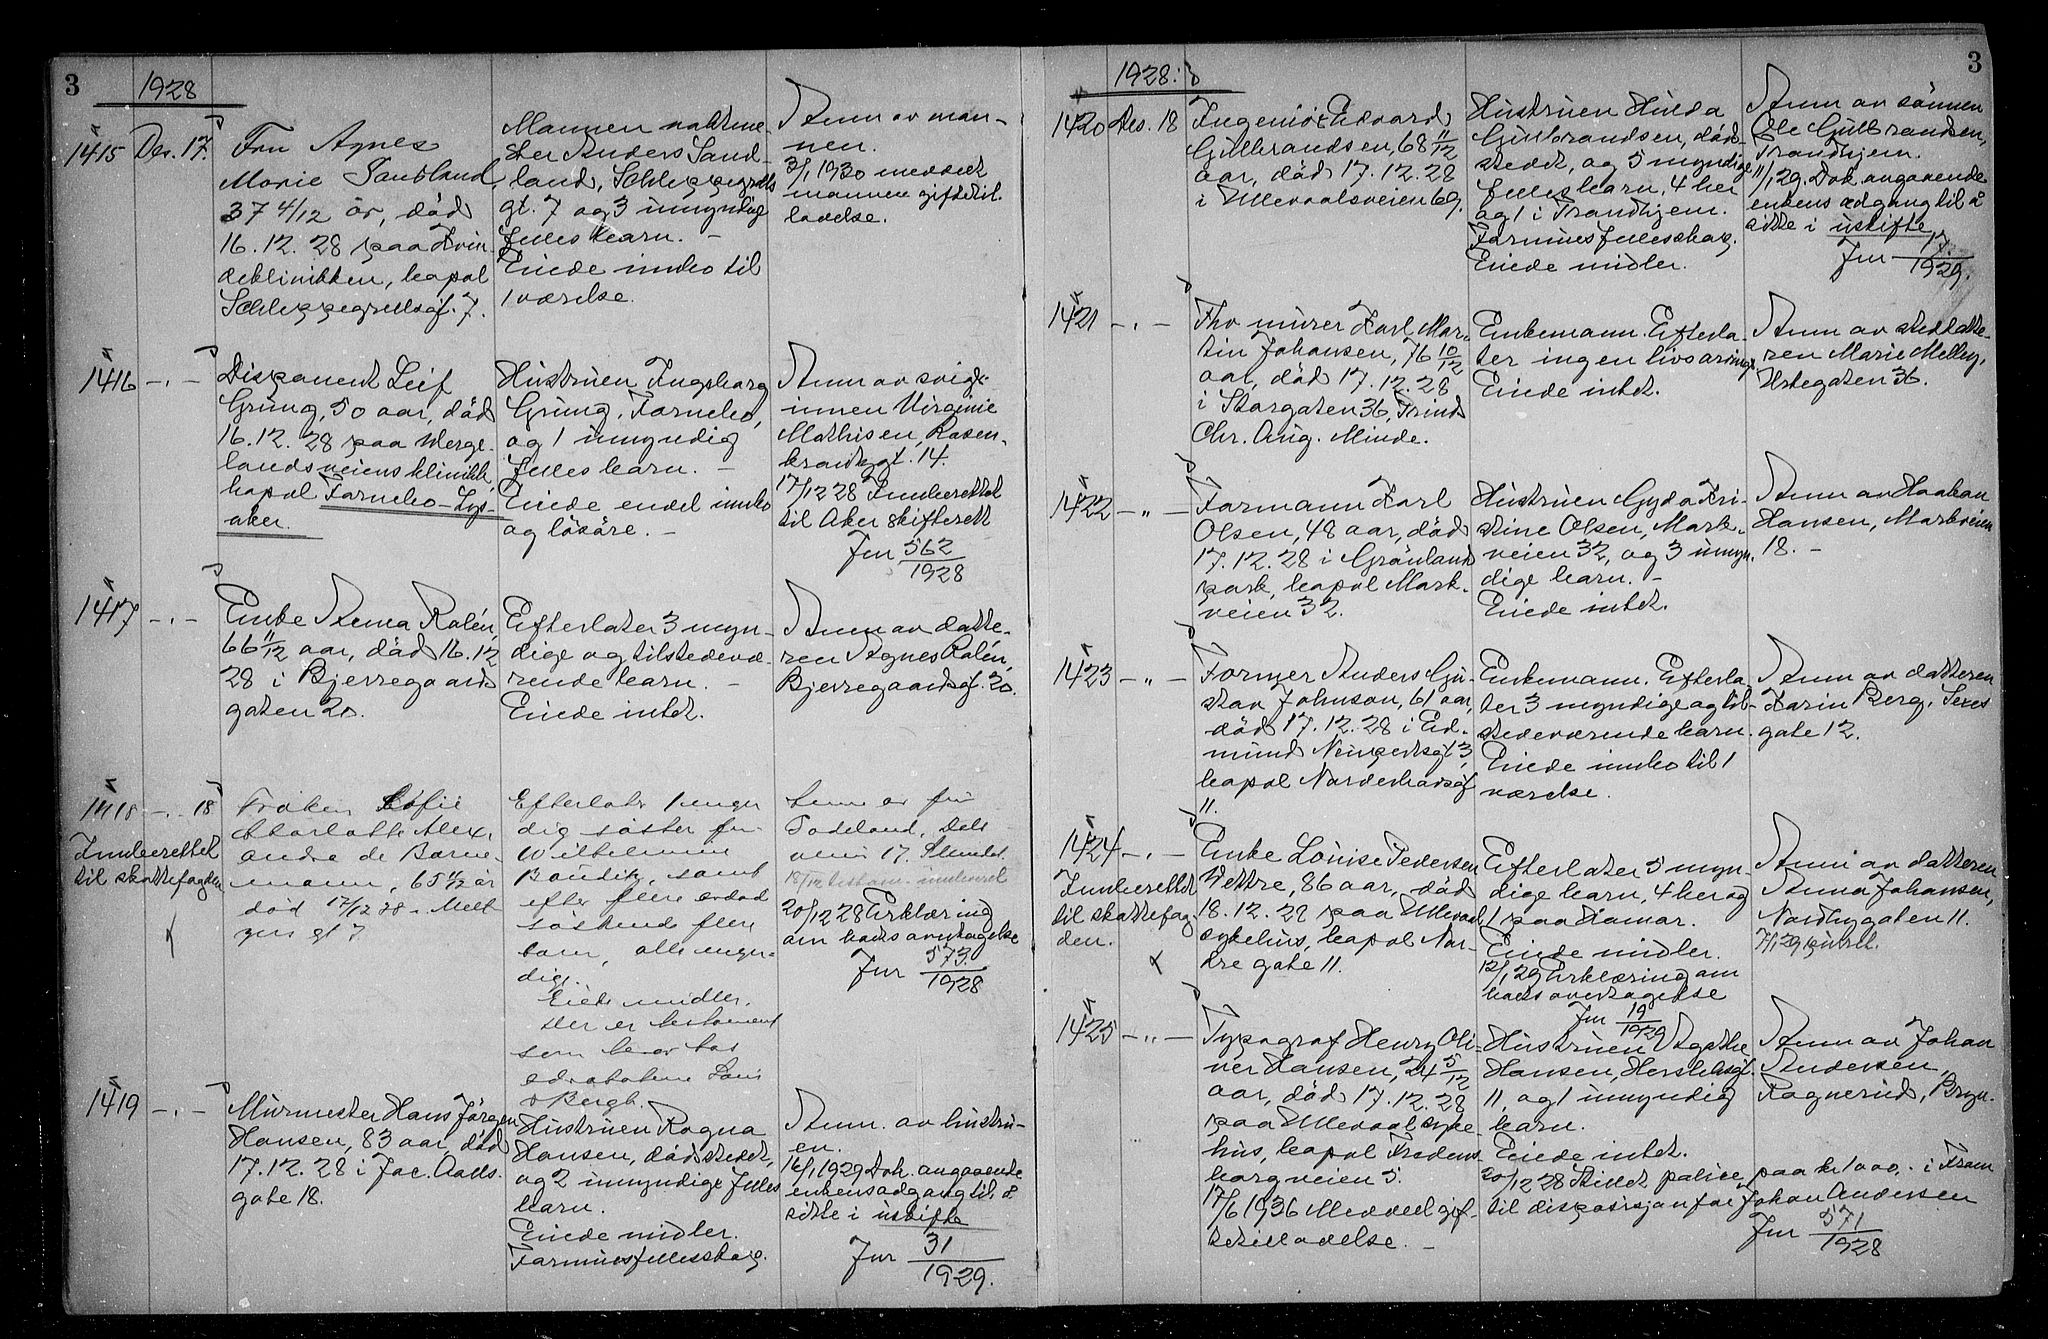 3
1928
1415 Des. 17.
Fru Agnes
Marie Sandland,
37 4/12 år, død
16.12.28 paa Kvin
deklinikken, bopæl
Schleppegrellsgt. 7.
Mannen vaktme-
ster Anders Sand-
land, Schleppegrells
gt. 7 og 3 umyndige
fellesbarn. -
Eiede innbo til
1 værelse.
Anm av man-
nen.
3/1 1930 meddelt
mannen giftetil-
ladelse.
1416 -.-
Disponent Leif
Grung, 50 aar, død
16.12.28 paa Werge-
landsveiens klinikk,
bopæl Fornebo-Lys-
aker.
Hustruen Ingeborg
Grung, Fornebo,
og 1 umyndig
fellesbarn. -
Eiede endel innbo
og løsøre. -
Anm av svigr.
innen Virginie
Mathisen, Rosen-
krantzgt. 14.
17/12 28 Innberettet
til Aker skifterett
Jnr 562/1928
1417 -.-
Enke Anna Rolén,
66 11/12 aar, død 16.12
28 i Bjerregaards
gaten 20.
Efterlater 3 myn-
dige og tilstedevæ-
rende barn. -
Eiede intet.
Anm av datte-
ren Agnes Rolén,
Bjerregaardsgt. 20.
1418 -.- 18
Innberettet
til skattefogden
Frøken Sofie
Charlotte Alex-
andra de Borne-
mann, 65 1/2 år
død 17/12 28 - Melt
zers gt 7
Efterlater 1 myn
dig søster fru
Wilhelmine
Bondik, samt
efter flere avdød
søskende flere
barn, alle myn-
dige.
Eiede midler.
Der er testament
som beror hos
advokatene
& Bergh.
Anm av fru
Dals
veien 17. Slemdal.
18/12 testam. innlevert
20/12 28 Erklæring
om boets overtagelse
Jnr 573/1928
1419 -.-
Murmester Hans Jørgen
Hansen, 83 aar, død
17.12.28 i Jac. Aalls
gate 18.
Hustruen Ragna
Hansen, dødstedet,
og 2 umyndige felles
barn.
Eiede midler.
Formuesfellesskap.
Anm. av hustru-
en.
16/1 1929 Dok. angaaende
enkens adgang til å
sitte i uskifte
Jnr 31/1929.
1928:
3
1420 Des. 18
Ingeniør Edvard
Gulbrandsen, 68 11/12
aar, død 17.12.28
i Ullevaalsveien 69.
Hustruen Hilda
Gulbrandsen, død-
stedet, og 5 myndige
fellesbarn, 4 her
og 1 i Trondhjem.
Formuesfellesskap.
Eiede midler.
Anm av sønnen
Ole Gulbrandsen,
Trondhjem.
11/1 29. Dok. angaaende
enkens adgang til å
sitte i uskifte
Jnr 17/1929.
1421 -.-
Fhv murer Karl Mar-
tin Johansen, 76 10/12
aar, død 17.12.28
i Storgaten 36, Prinds
Chr. Aug. Minde.
Enkemann. Efterla-
ter ingen livsarvinger
Eiede intet.
Anm av steddatte-
ren Marie Melby,
Urtegaten 36.
1422 -"-
Formann Karl
Olsen, 48 aar, død
17.12.28 i Grønlands
park, bopæl Mark-
veien 32.
Hustruen Gyda Kri-
stine Olsen, Mark-
veien 32, og 3 umyn-
dige barn. -
Eiede intet.
Anm av Haakon
Hansen, Markveien
18. -
1423 -"-
Former Anders Gu-
stav Johnson, 61 aar,
død 17.12.28 i Ed-
mund Neupertsgt 3,
bopæl Norderhovsgt
11.
Enkemann. Efterla-
ter 3 myndige og til-
stedeværende barn.
Eiede innbo til 1
værelse.
Anm av datteren
Karin Berg, Sexes
gate 12.
1424 -.-
Innberettet
til skattefog-
den.
Enke Louise Pedersen
Wettre, 86 aar, død
18.12.28 paa Ullevaal
sykehus, bopæl Nor-
dre gate 11.
Efterlater 5 myn-
dige barn, 4 her og
1 paa Hamar.
Eiede midler.
12/1 29 Erklæring om
boets overtagelse
Jnr 19/1929
Anm av datteren
Anna Johansen,
Nordbygaten 11.
7/1 29 purret.
1425 -"-
Typograf Henry Oli-
ver Hansen, 24 5/12
aar, død 17.12.28
paa Ullevaal syke-
hus, bopæl Fredens
borgveien 5.
17/6 1936 Meddelt gif-
tetilladelse. -
Hustruen Agathe
Hansen, Herslebsgt.
11, og 1 umyndig
barn.
Eiede intet.
20/12 28 Utlevert police, paa kr 1000,- i Fram
til disposisjon for Johan Andersen
Jnr 571/1928
Anm av Johan
Andersen,
Ragnerud, Bryn.